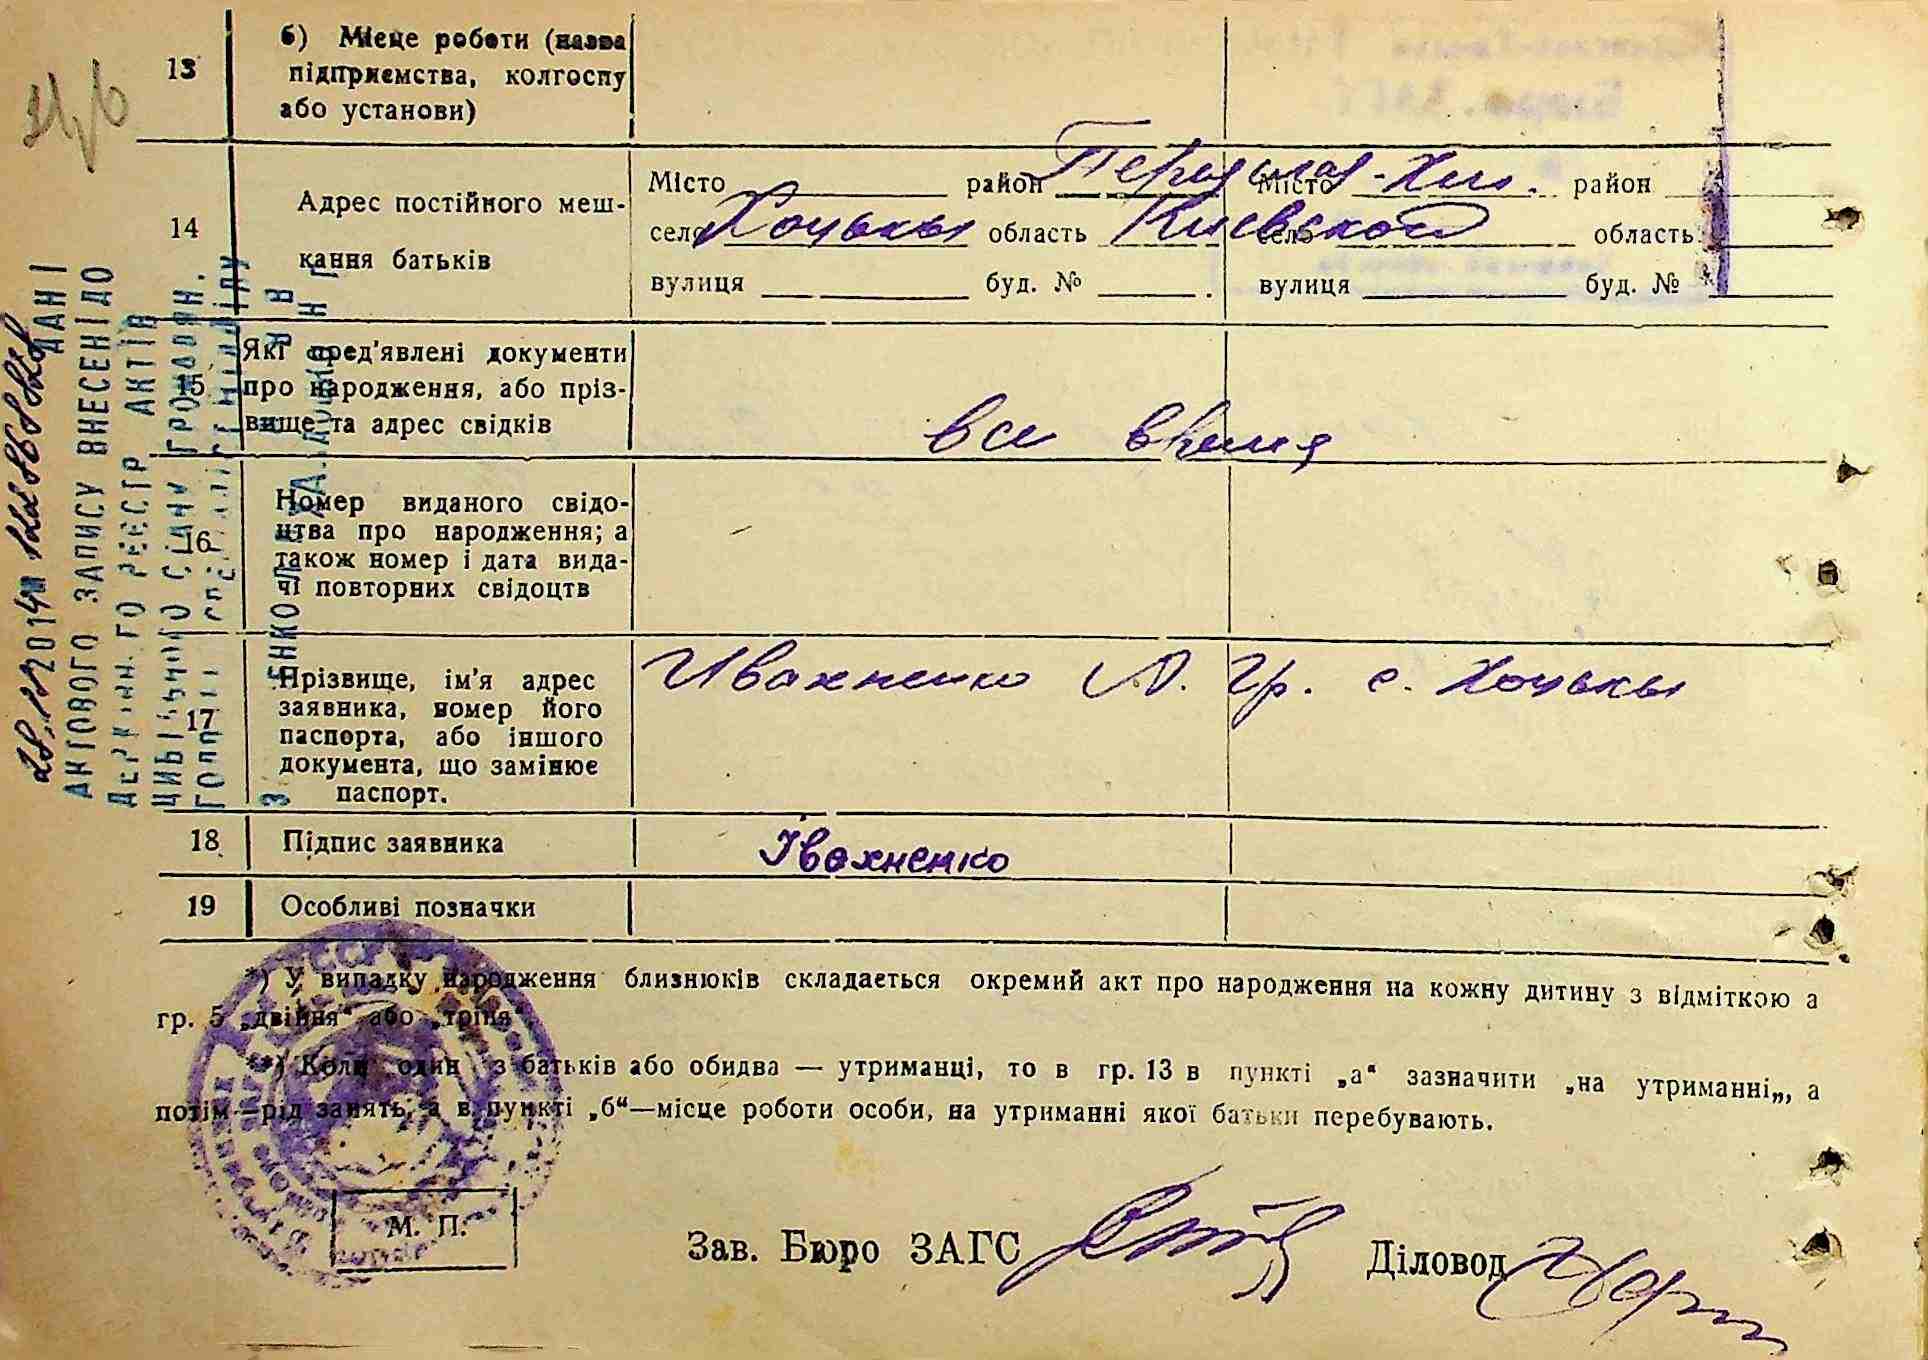 13 б) Місце роботи (назва
підприємства, колгоспу
або установи)
14 Адрес постійного меш-
кання батьків
Місто район Переяслав-Хм. Місто район
село Хоцьки область Киевской село область
вулиця буд. № вулиця буд. №
15 Які пред'явлені документи
про народження, або пріз-
вище та адрес свідків
все время
16 Номер виданого свідо-
цтва про народження; а
також номер і дата вида-
чі повторних свідоцтв
17 Прізвище, ім'я адрес
заявника, номер його
паспорта, або іншого
документа, що замінює
паспорт.
Ивахненко А. Гр. с. Хоцьки
18 Підпис заявника Івахненко
19 Особливі позначки
*) У випадку народження близнюків складається окремий акт про народження на кожну дитину з відміткою а
гр. 5 „двійня“ або „трійня“
**) Коли один з батьків або обидва — утриманці, то в гр. 13 в пункті „а“ зазначити „на утриманні„, а
потім—рід занять, а в пункті „б“—місце роботи особи, на утриманні якої батьки перебувають.
М. П.
Зав. Бюро ЗАГС Діловод
ДАНІ
АКТОВОГО ЗАПИСУ ВНЕСЕНІ ДО
ДЕРЖАВНОГО РЕЄСТР АКТІВ
ЦИВІЛЬНОГО СТАНУ ГРОМАДЯН.